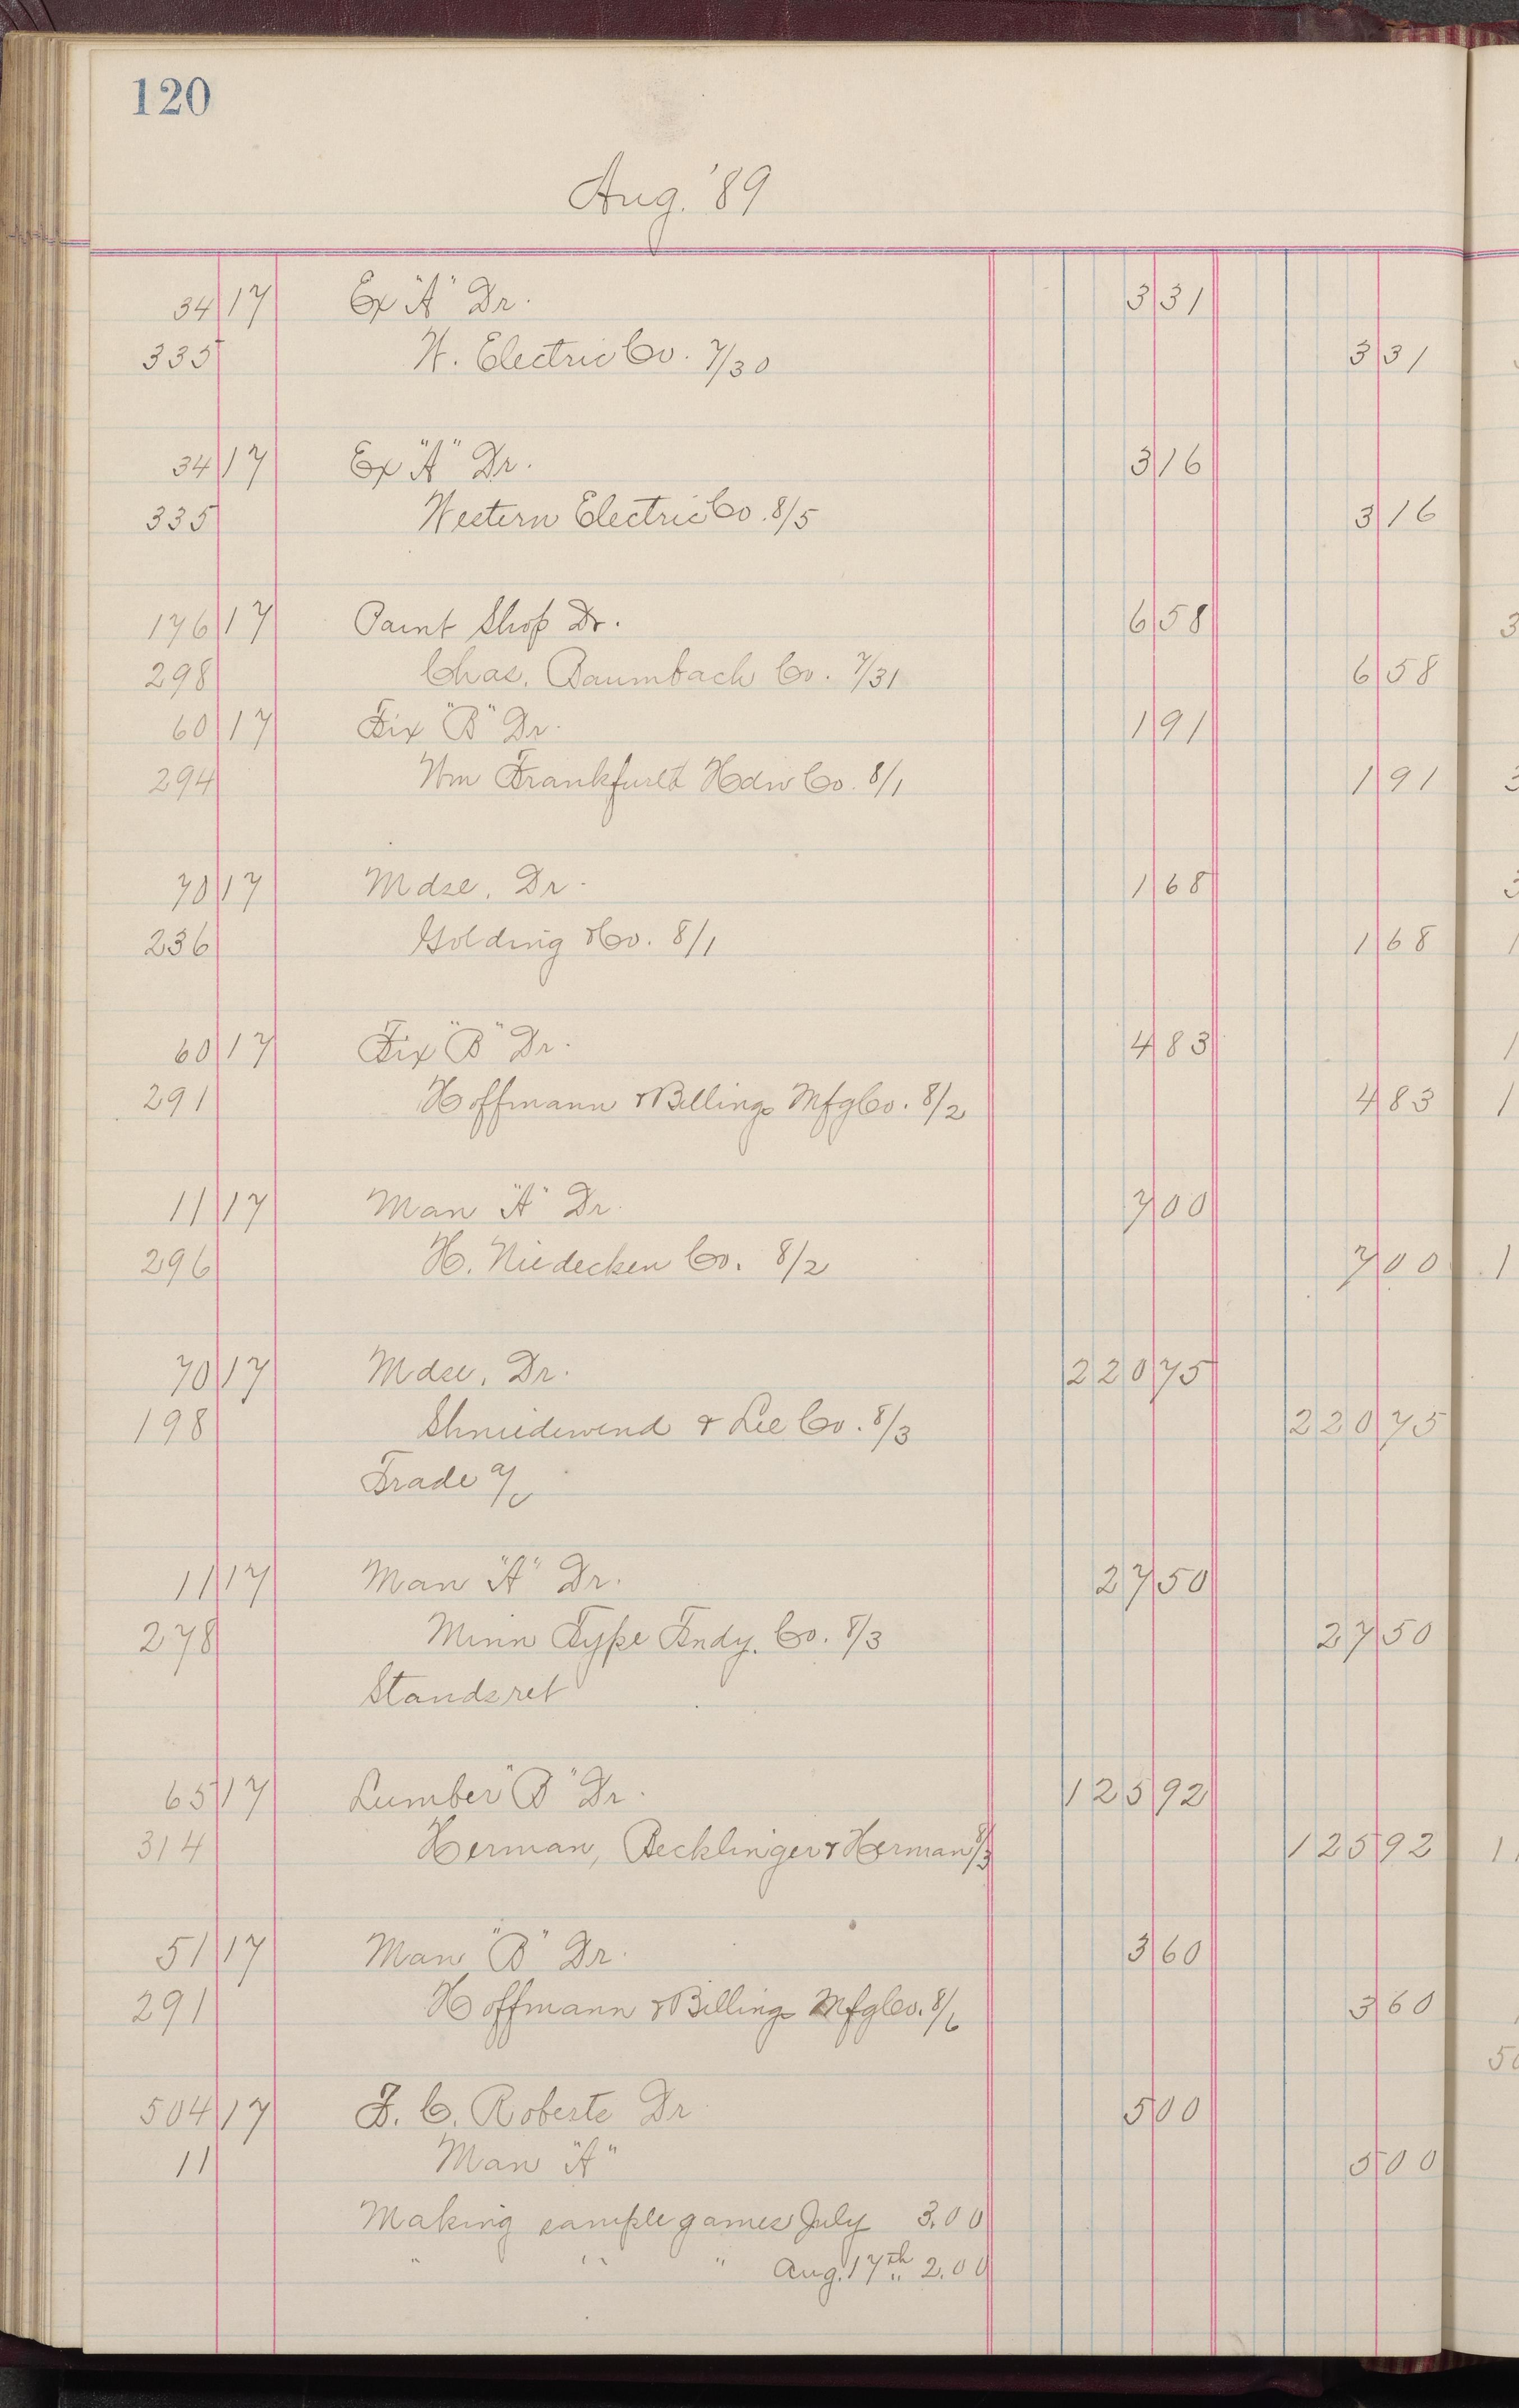 120
Aug. '89
34 17 Ex "A" Dr. 3 31
335 W. Electric Co. 7/30 3 31
34 17 Ex "A" Dr. 3 16
335 Western Electric Co. 8/5 3 16
176 17 Paint Shop Dr. 6 58
298 Chas. Baumbach Co. 7/31 6 58
60 17 Fix "B" Dr. 1 91
294 Wm Frankfurth Hdw Co. 8/1 1 91
70 17 Mdse. Dr. 1 68
236 Golding & Co. 8/1 1 68
60 17 Fix "B" Dr. 4 83
291 Hoffmann & Billings Mfg Co. 8/2 4 83
11 17 Man "A" Dr. 7 00
296 H. Niedecken Co. 8/2 7 00
70 17 Mdse. Dr. 220 75
198 Shniedewend & Lee Co. 8/3 220 75
Trade a/c
11 17 Man "A" Dr. 27 50
278 Minn Type Fndy. Co. 8/3 27 50
Stands ret
65 17 Lumber "B" Dr. 125 92
314 Herman, Becklinger & Herman 8/3 125 92
51 17 Man "B" Dr. 3 60
291 Hoffmann & Billings Mfg Co. 8/6 3 60
504 17 F. C. Roberts Dr 5 00
11 Man "A" 5 00
Making sample games July 3.00
" " " Aug. 17th 2.00